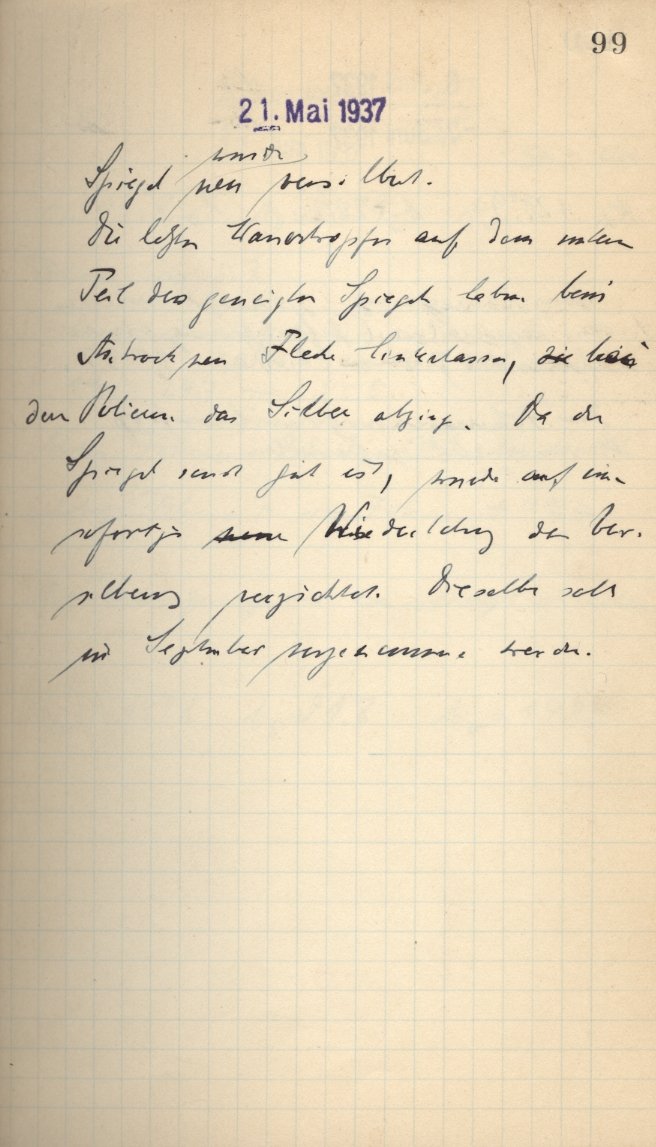 99
21. Mai 1937
wurde
Spiegel neu versilbert.
Die letzten Wassertropfen auf dem untern
Teil des geneigten Spiegels haben beim
Antrocknen Flecke hinterlassen,
dem Polieren das Silber abging. Da der
Spiegel sonst gut ist, wurde auf eine
sofortige neue Wiederholung der Ver-
silberung verzichtet. Dieselbe soll
im September vorgenommen werden.